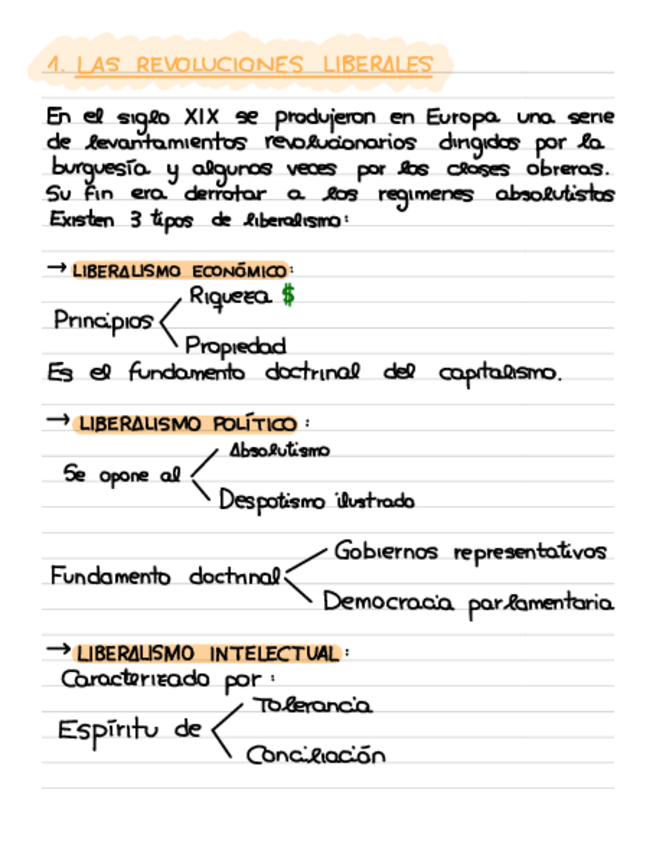 1. LAS REVOLUCIONES LIBERALES
En el siglo XIX se produjeron en Europa una serie
de levantamientos revolucionarios dirigidos por la
burguesía y algunas veces por las clases obreras.
Su fin era derrotar a los regimenes absolutistas
Existen 3 tipos de liberalismo:
→ LIBERALISMO ECONÓMICO:
Riqueza $
Principios
Propiedad
Es el fundamento doctrinal del capitalismo.
→ LIBERALISMO POLÍTICO:
Absolutismo
Se opone al
Despotismo ilustrado
Gobiernos representativos
Fundamento doctrinal
Democracia parlamentaria
→ LIBERALISMO INTELECTUAL:
Caracterizado por:
Tolerancia
Espíritu de
Conciliación